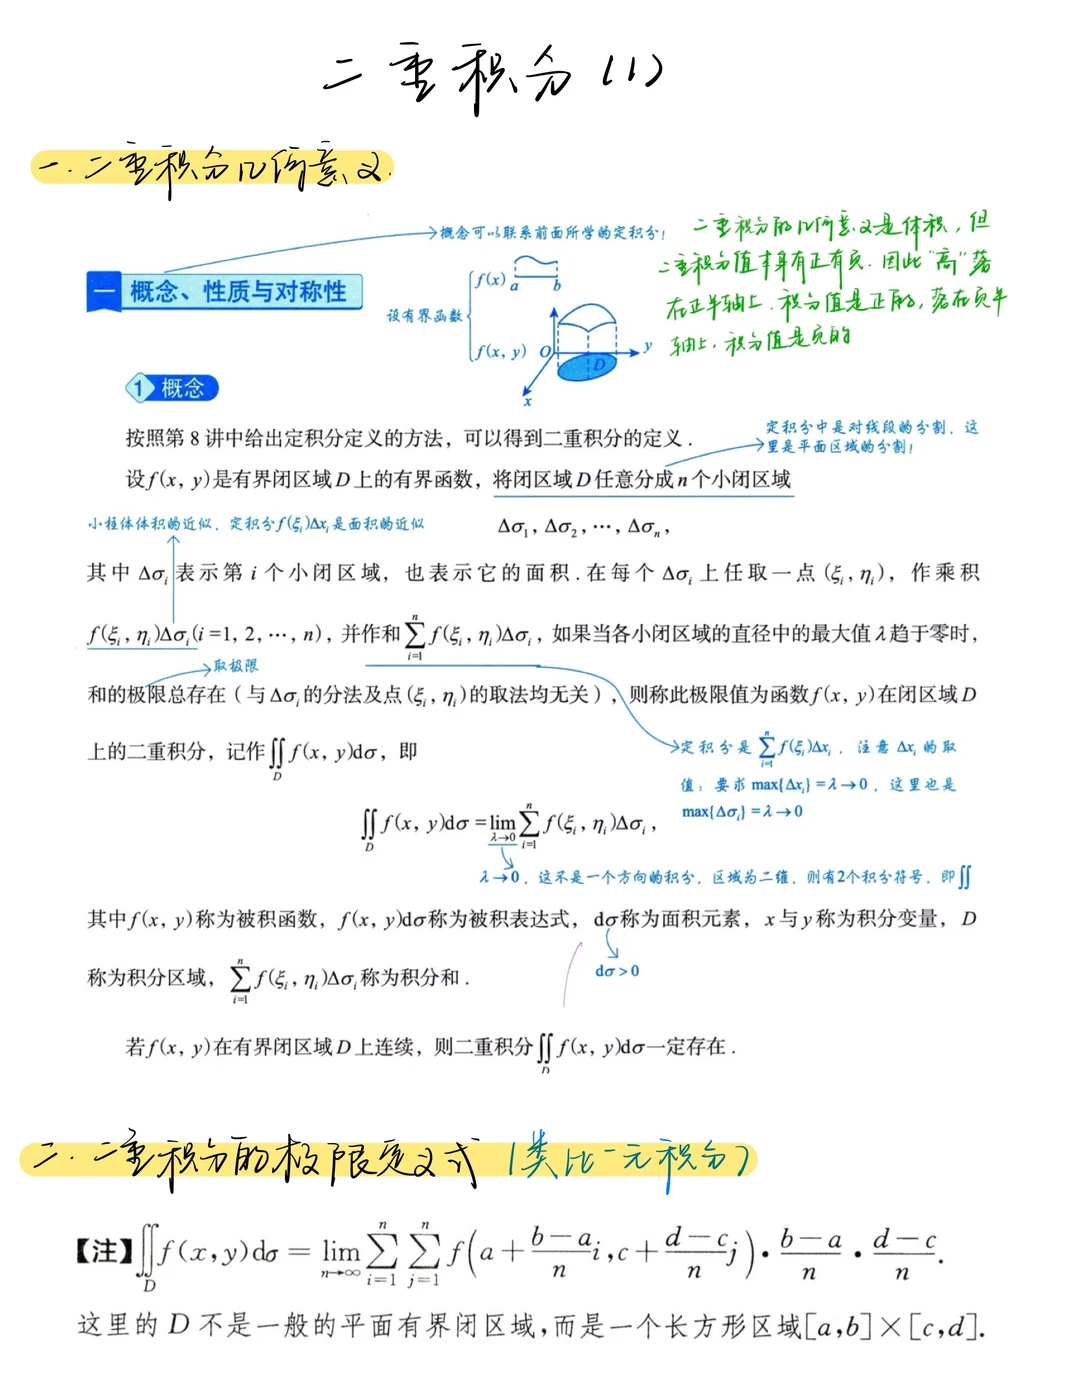 二重积分(1)
一.二重积分几何意义.
概念可以联系前面所学的定积分!
二重积分的几何意义是体积，但
二重积分值本身有正有负.因此"高"落
在正半轴上.积分值是正的，落在负半
轴上.积分值是负的
一 概念、性质与对称性
设有界函数
f(x) a b
f(x, y) O D y
x
1 概念
按照第8讲中给出定积分定义的方法，可以得到二重积分的定义.
定积分中是对线段的分割，这
里是平面区域的分割!
设f(x, y)是有界闭区域D上的有界函数，将闭区域D任意分成n个小闭区域
小柱体体积的近似，定积分f(ξᵢ)Δxᵢ是面积的近似
Δσ₁, Δσ₂, ⋯, Δσₙ,
其中Δσᵢ表示第i个小闭区域，也表示它的面积.在每个Δσᵢ上任取一点(ξᵢ, ηᵢ)，作乘积
f(ξᵢ, ηᵢ)Δσᵢ(i=1, 2, ⋯, n)，并作和∑ᵢ₌₁ⁿ f(ξᵢ, ηᵢ)Δσᵢ，如果当各小闭区域的直径中的最大值λ趋于零时，
取极限
和的极限总存在（与Δσᵢ的分法及点(ξᵢ, ηᵢ)的取法均无关），则称此极限值为函数f(x, y)在闭区域D
上的二重积分，记作∬_D f(x, y)dσ，即
定积分是∑ᵢ₌₁ⁿ f(ξᵢ)Δxᵢ，注意Δxᵢ的取
值：要求max{Δxᵢ}=λ→0，这里也是
max{Δσᵢ}=λ→0
∬_D f(x, y)dσ=lim_{λ→0}∑ᵢ₌₁ⁿ f(ξᵢ, ηᵢ)Δσᵢ,
λ→0，这不是一个方向的积分，区域为二维，则有2个积分符号，即∬
其中f(x, y)称为被积函数，f(x, y)dσ称为被积表达式，dσ称为面积元素，x与y称为积分变量，D
dσ>0
称为积分区域，∑ᵢ₌₁ⁿ f(ξᵢ, ηᵢ)Δσᵢ称为积分和.
若f(x, y)在有界闭区域D上连续，则二重积分∬_D f(x, y)dσ一定存在.
二.二重积分的极限定义式（类比一元积分）
【注】∬_D f(x,y)dσ = lim_{n→∞} ∑ᵢ₌₁ⁿ ∑ⱼ₌₁ⁿ f(a+(b-a)/n i, c+(d-c)/n j)·(b-a)/n·(d-c)/n.
这里的D不是一般的平面有界闭区域,而是一个长方形区域[a,b]×[c,d].